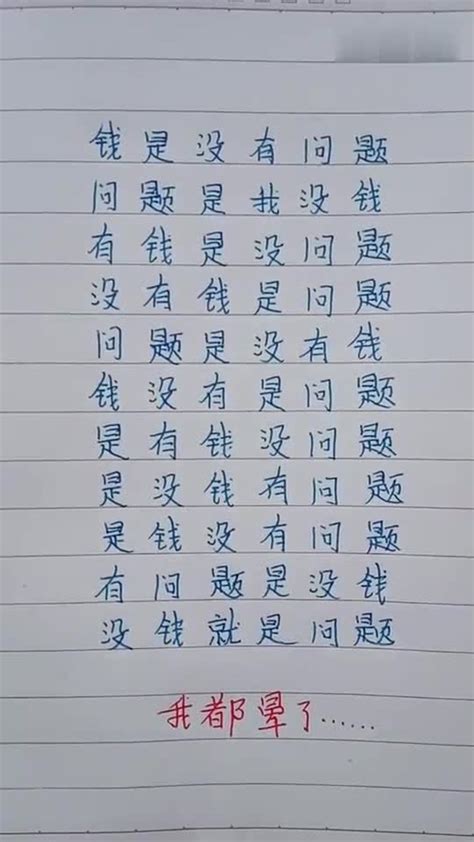 钱是没有问题
问题是我没钱
有钱是没问题
没有钱是问题
问题是没有钱
钱没有是问题
是有钱没问题
是没钱有问题
是钱没有问题
有问题是没钱
没钱就是问题
我都晕了……